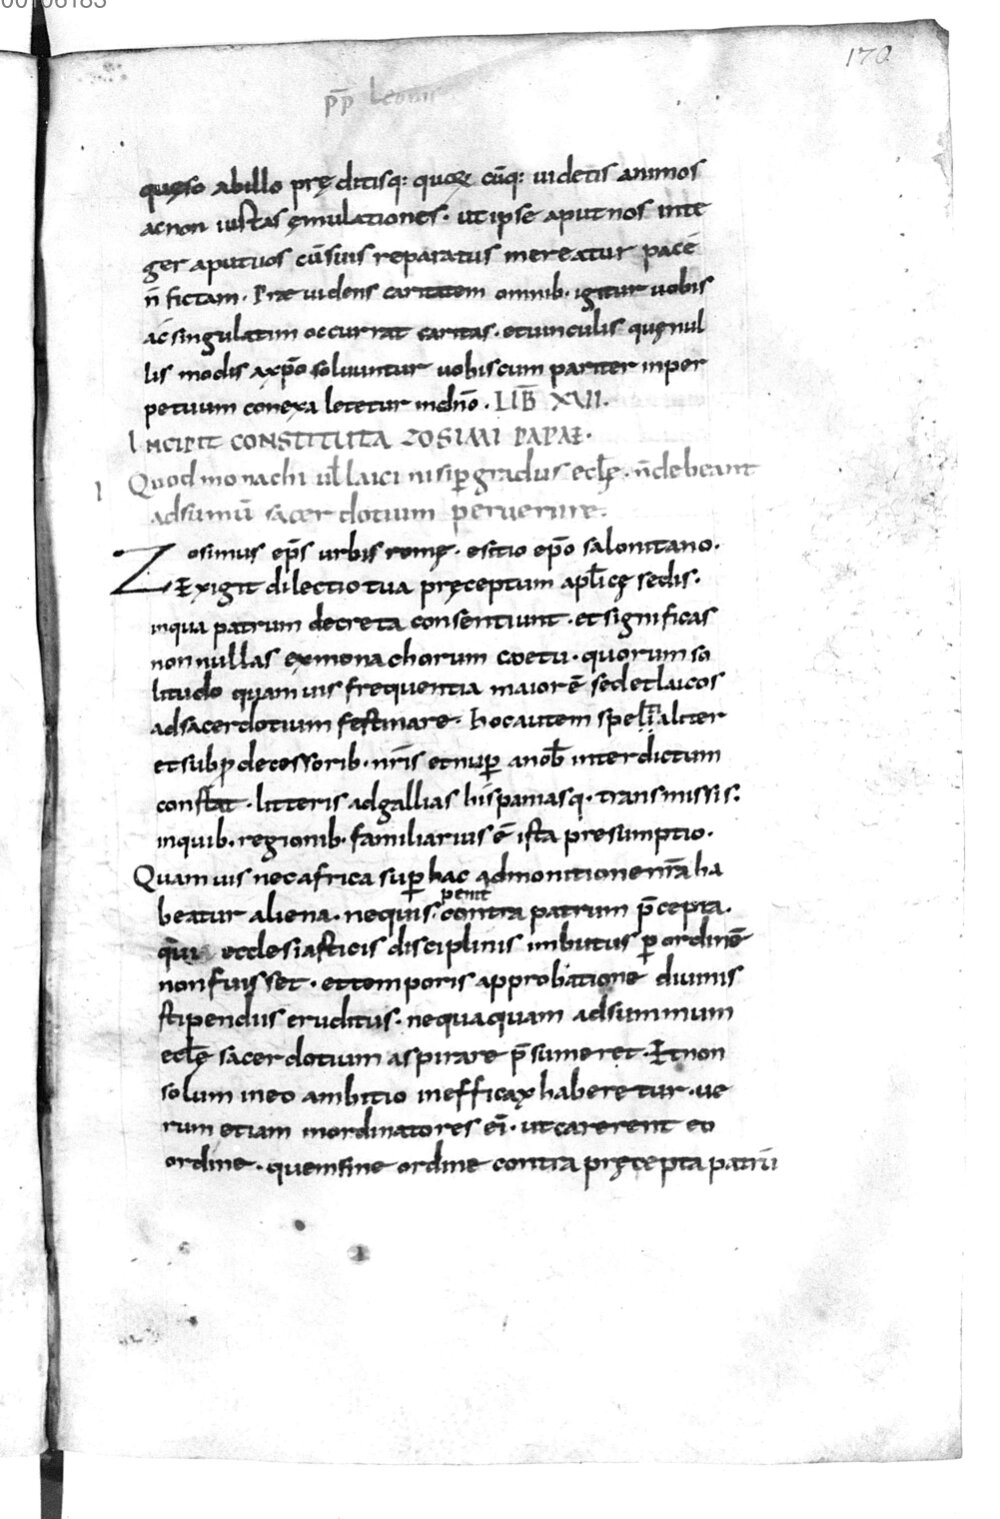 170
pp̄ Leonis
quęso abillo prę ditisq: quorꝝ cūq: uidetis animos
acnon iustas ęmulationes · ut ipse aputnos inte
ger aputuos cūsuis reparatus mereatur pacē
n̄ fictam · Prae uidens caritatem omnib · igitur uobis
ac singulatim occurrat caritas · etuinculis quęnul
lis modis axp̄o soluuntur uobiscum pariter inper
petuum conexa letetur indn̄o · LIB̄ XVII.
INCIPIT CONSTITUTA ZOSIMI PAPAE ·
I Quod monachi ul̄ laici nisi ꝑ gradus ecl̄ę · n̄ debeant
adsumū sacer dotium peruenire ·
Zosimus ep̄s urbis romę · esitio ep̄o salonitano ·
Exigit dilectio tua pręceptum apl̄icę sedis ·
inqua patrum decreta consentiunt · et significas
non nullas exmonachorum coetu · quorum so
litudo quam uis frequentia maiorē sedetlaicos
adsacerdotium festinare · hocautem speli aliter
etsubp̱ decessorib · nr̄is etnuꝑ anob̄ interdictum
constat · litteris adgallias hispaniasq · transmissis:
inquib · regionib · familiarius ē ista presumptio ·
Quam uis necafrica suꝑ hac admonitione nr̄a ha
beatur aliena · nequis · penit contra patrum p̄cepta ·
qui ecclesiasticis disciplinis imbutus ꝑ ordinē
nonfuisset · ettemporis approbatione diuinis
stipendiis eruditus · nequaquam adsummum
ecl̄ę sacer dotium aspirare p̄sumeret · Et non
solum ineo ambitio inefficax haberetur · ue
rum etiam inordinatores ei · utcarerent eo
ordine · quemsine ordine contra pręcepta patrū